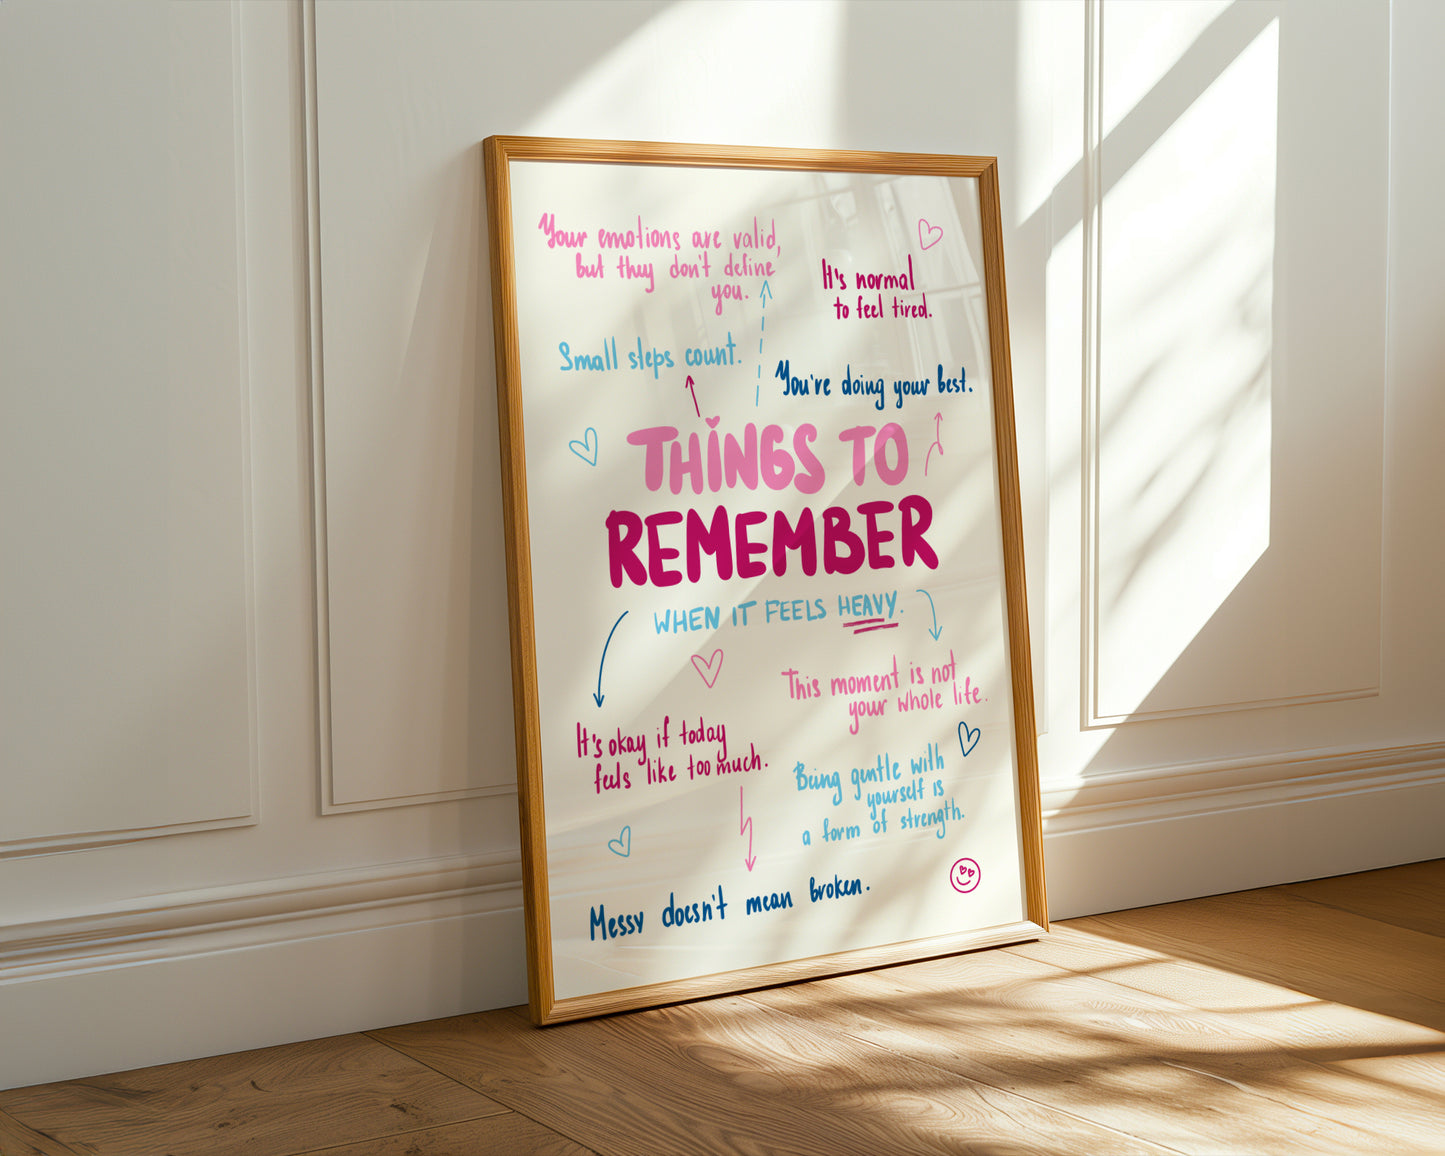 Your emotions are valid,
but they don't define
you.
It's normal
to feel tired.
Small steps count.
You're doing your best.
THINGS TO
REMEMBER
WHEN IT FEELS HEAVY.
This moment is not
your whole life.
It's okay if today
feels like too much.
Being gentle with
yourself is
a form of strength.
Messy doesn't mean broken.